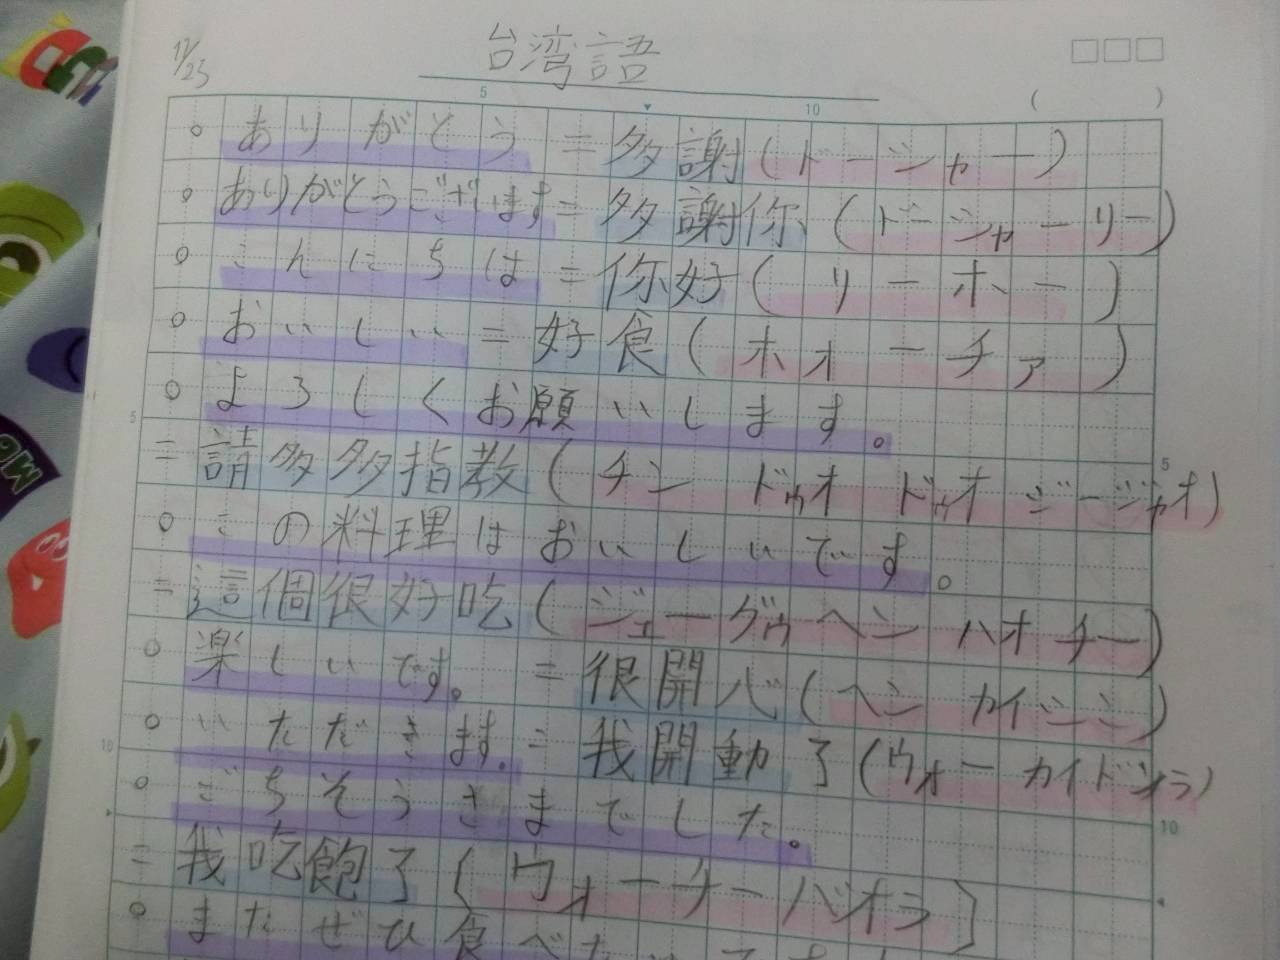 12/23
台湾語
5 10
( )
○ありがとう=多謝(ドーシャー)
○ありがとうございます=多謝你(ドーシャーリー)
○こんにちは=你好(リーホー)
○おいしい=好食(ホォーチァ)
○よろしくお願いします。
5
=請多多指教(チン ドゥオ ドゥオ ジージャオ)
5
○この料理はおいしいです。
=這個很好吃(ジェーグゥ ヘン ハオ チー)
○楽しいです。=很開心(ヘン カイシン)
○いただきます。=我開動了(ウォー カイドンラ)
10
○ごちそうさまでした。
10
=我吃飽了(ウォーチーバオラ)
○またぜひ食べた